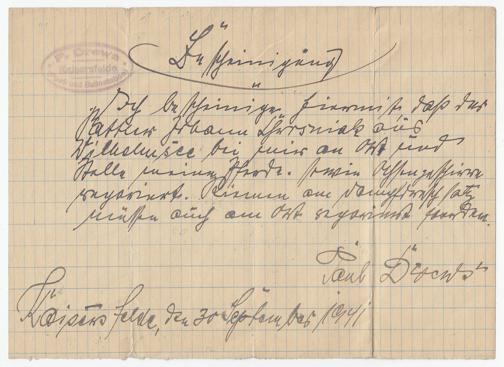 P. Drews
Kaisersfelde
Bescheinigung
Ich bescheinige hiermit daß der
Sattler Johann
Wilhelmsee bei mir an Ort und
Stelle meine Pferde. sowie Ochsengeschirre
repariert. Riemen am Dampfdreschsatz
müssen auch am Ort repariert werden.
Paul Drews
Kaisersfelde, den 30 September 1941